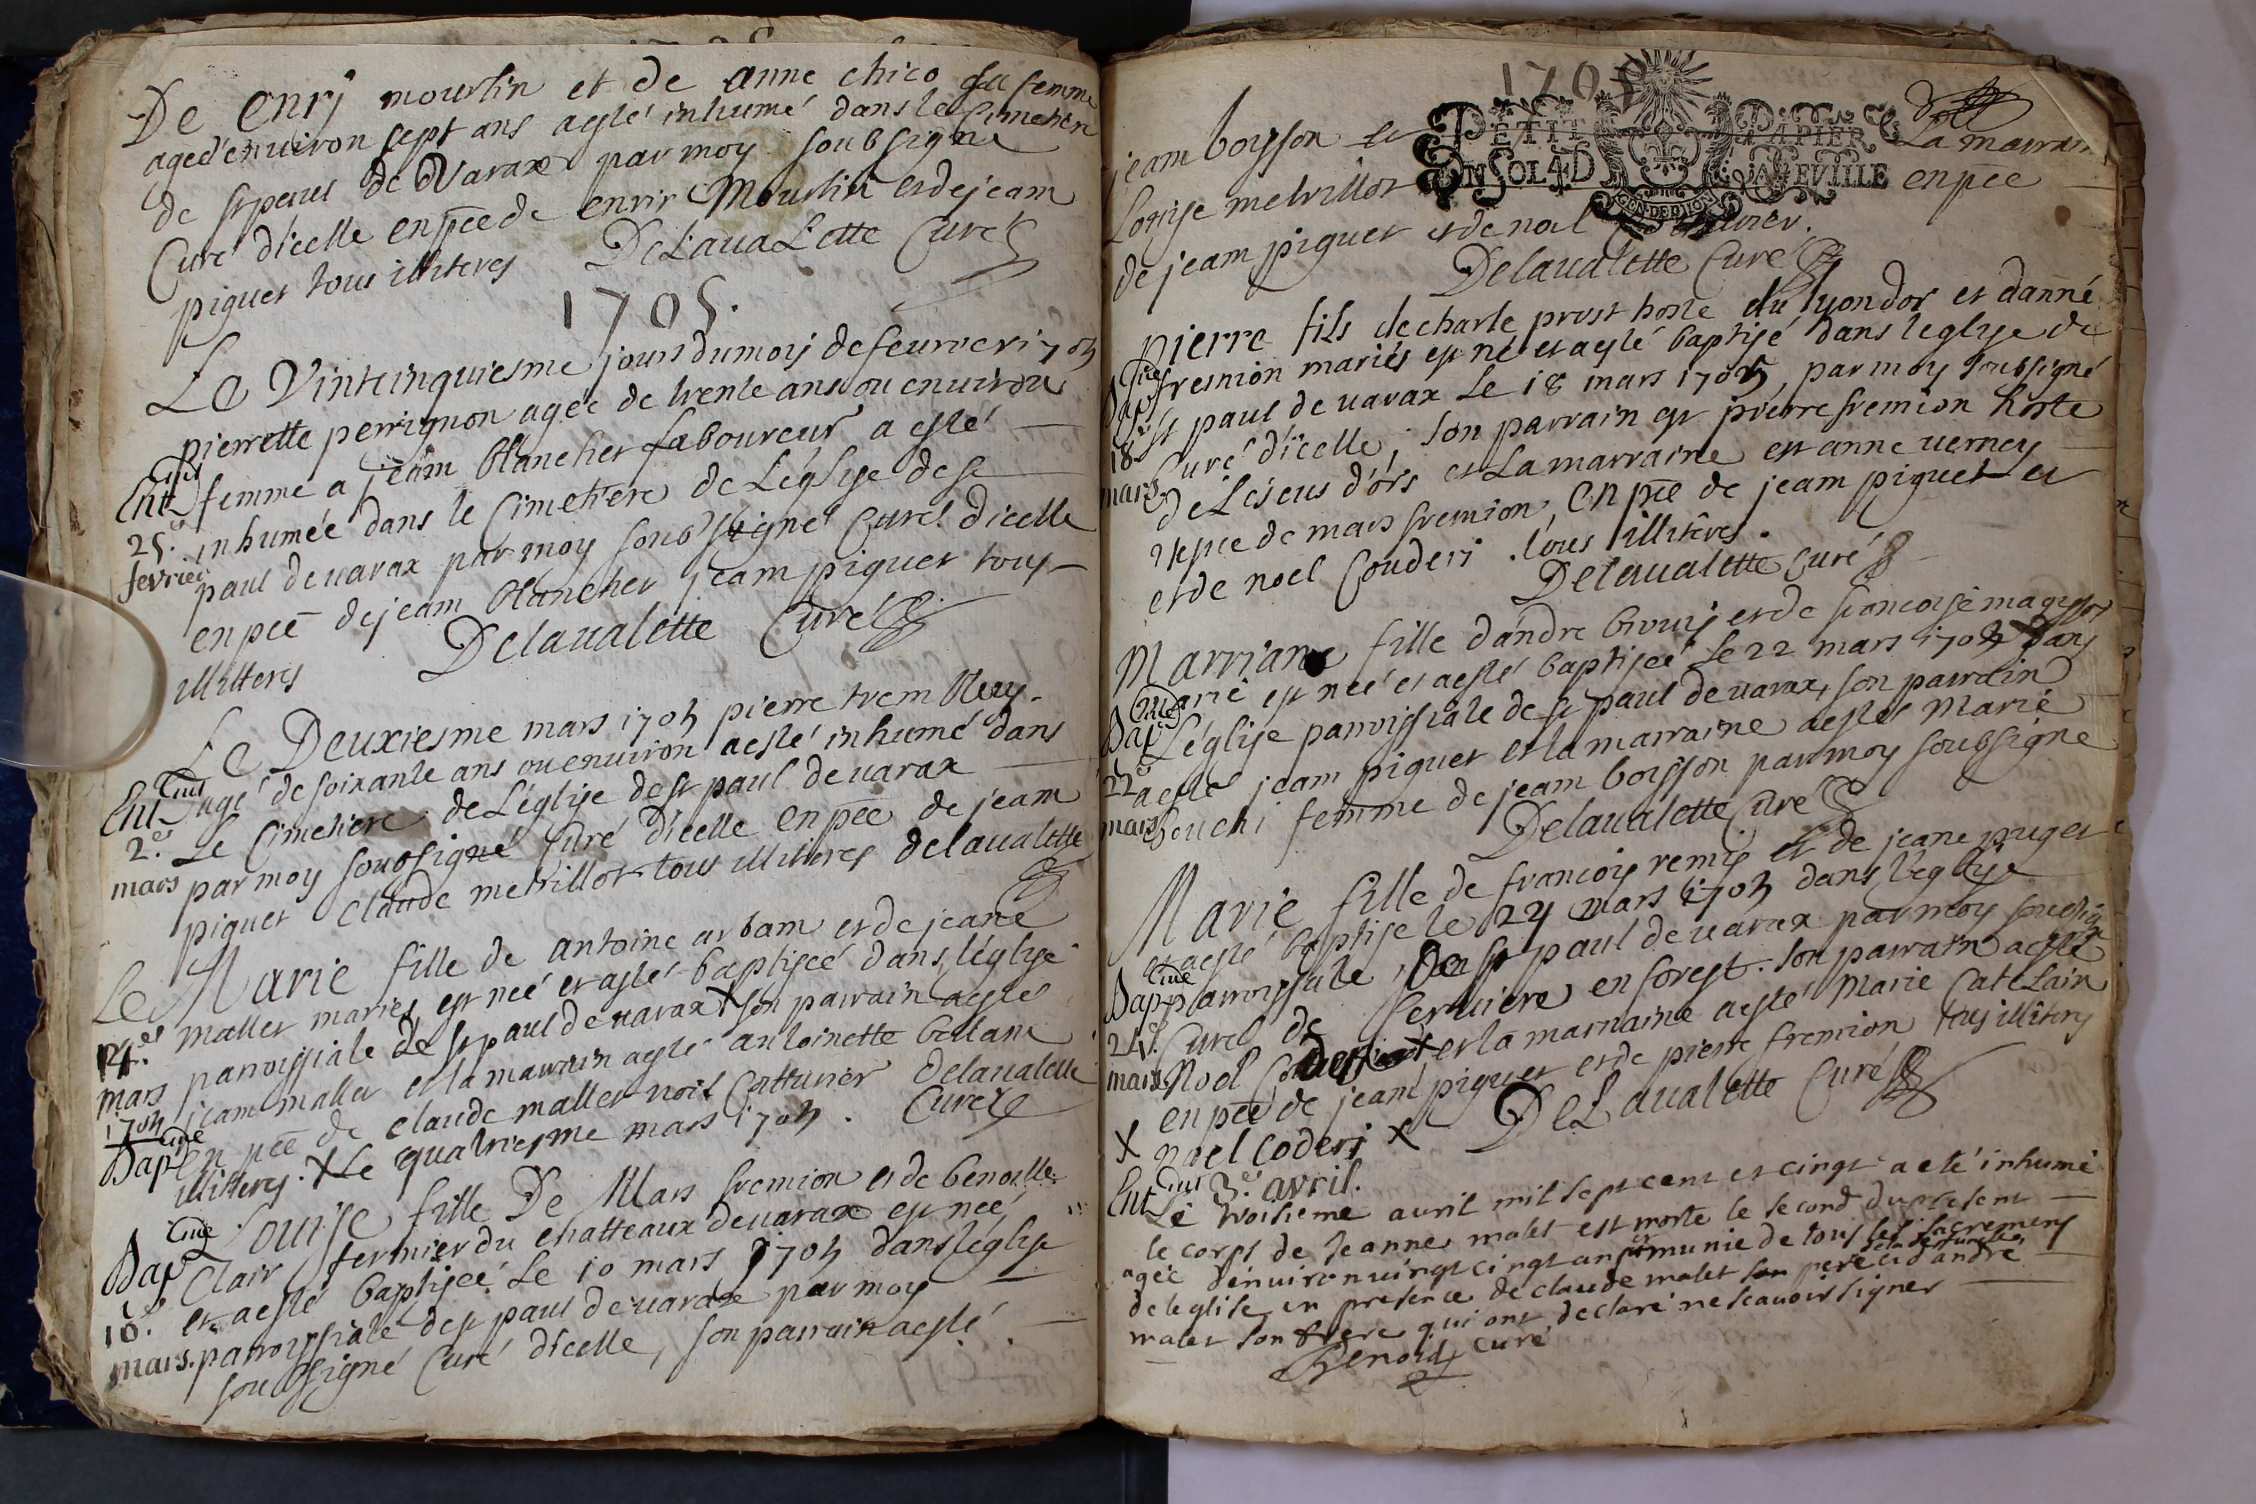 De enrj mourlin et de anne chico sa femme
aged'environ sept ans aesté inhumé dans le Cimetiere
de st paul de Varax par moy soubsigne
Curé dicelle en pce de enrir Mourlin et de jeam
piquet tous illiteres DeLavaLette Curé
1705.
Le Vintcinquiesme jours du moy de feuvrer 1705
pierrette perrignon agée de trente ans ou environ
Ent femme a jeam blancher laboureur a esté
25.e inhumée dans le Cimetiere de Léglise de st
fevrier paul de varax par moy soubsigné Curé dicelle
en pce de jeam blancher jeam piquet tous
illitteres Delavalette Curé
Le Deuxiesme mars 1705 pierre trembley
Ent agé de soixante ans ou environ aesté inhumé dans
2.e Le Cimetiere de Léglise de st paul de varax
mars par moy soubsigné Curé dicelle en pce de jeam
piquet Claude metrillot tous illiteres delavalette
Marie fille de antoine arbam et de jeane
Le 4.e mallet mariés, est neé et aesté baptiseé dans léglise
mars parroissiale de st paul de varax X son parrain aesté
1705 jeam mallet et la marrain aesté antoinette bellam
Bap en pce de claude mallet noel Couturier delavalette
illiteres. X Le quatriesme mars 1705. Curé
Louise fille De Mars fremion et de benoitte
Bap Clair fermier du chatteaux de varax est neé
10.e et aesté baptiseé Le 10 mars 1705 dans léglise
mars. parroissiale de st paul de varax par moy
soubsigné Curé dicelle, son parrain aesté
1705
jeam boysson et La marrain
PETIT PAPIER
UN SOL 4 D LA FEVILLE
GEN DE DION
Louise metrillot en pce
de jeam piquet et de noel
Delavalette Curé
pierre fils de charle prost hoste du lyon dor et danné
Bap fremion mariés est né et aesté baptisé dans leglise de
18.e st paul de varax Le 18 mars 1705, par moy soubsigné
mars Curé dicelle, son parrain est pierre fremion hoste
de Léseus d'ors et La marraine est anne verney
de mars fremion, en pce de jeam piquet et
et de noel Couderi. tous illiteres.
Delavalette Curé
Marriane fille dandre bourj et de francoise
marié est neé et aesté baptiseé Le 22 mars 1705 dans
Bap Léglise parroissiale de st paul de varax, son parrain
22.e aesté jeam piquet et la marraine aesté Marie
mars bouchi femme de jeam boysson par moy soubsigne
Delavalette Curé
Marie fille de francois remy et de jeane puget
et aesté baptise le 24 mars 1705 dans leglise
Bap parroissiale de st paul de varax par moy soubsigné
24.e Curé de ferviere en forest. son parrain aesté
mars Noel et la marraine aesté Marie Catelain
en pce de jeam piquet et de pierre fremion tous illiteres
X noel Coderj X DeLavalette Curé
Ent 3.e avril.
Le troisieme avril mil sept cent et cinqt a eté inhumé
le corps de Jeanne malet est morte le second du present
agée d'environ vingt cinqt ans munie de tous les sacrements
de leglise en presence de claude malet son pere et d'andré
malet son frere qui ont declaré ne scavoir signer
curé